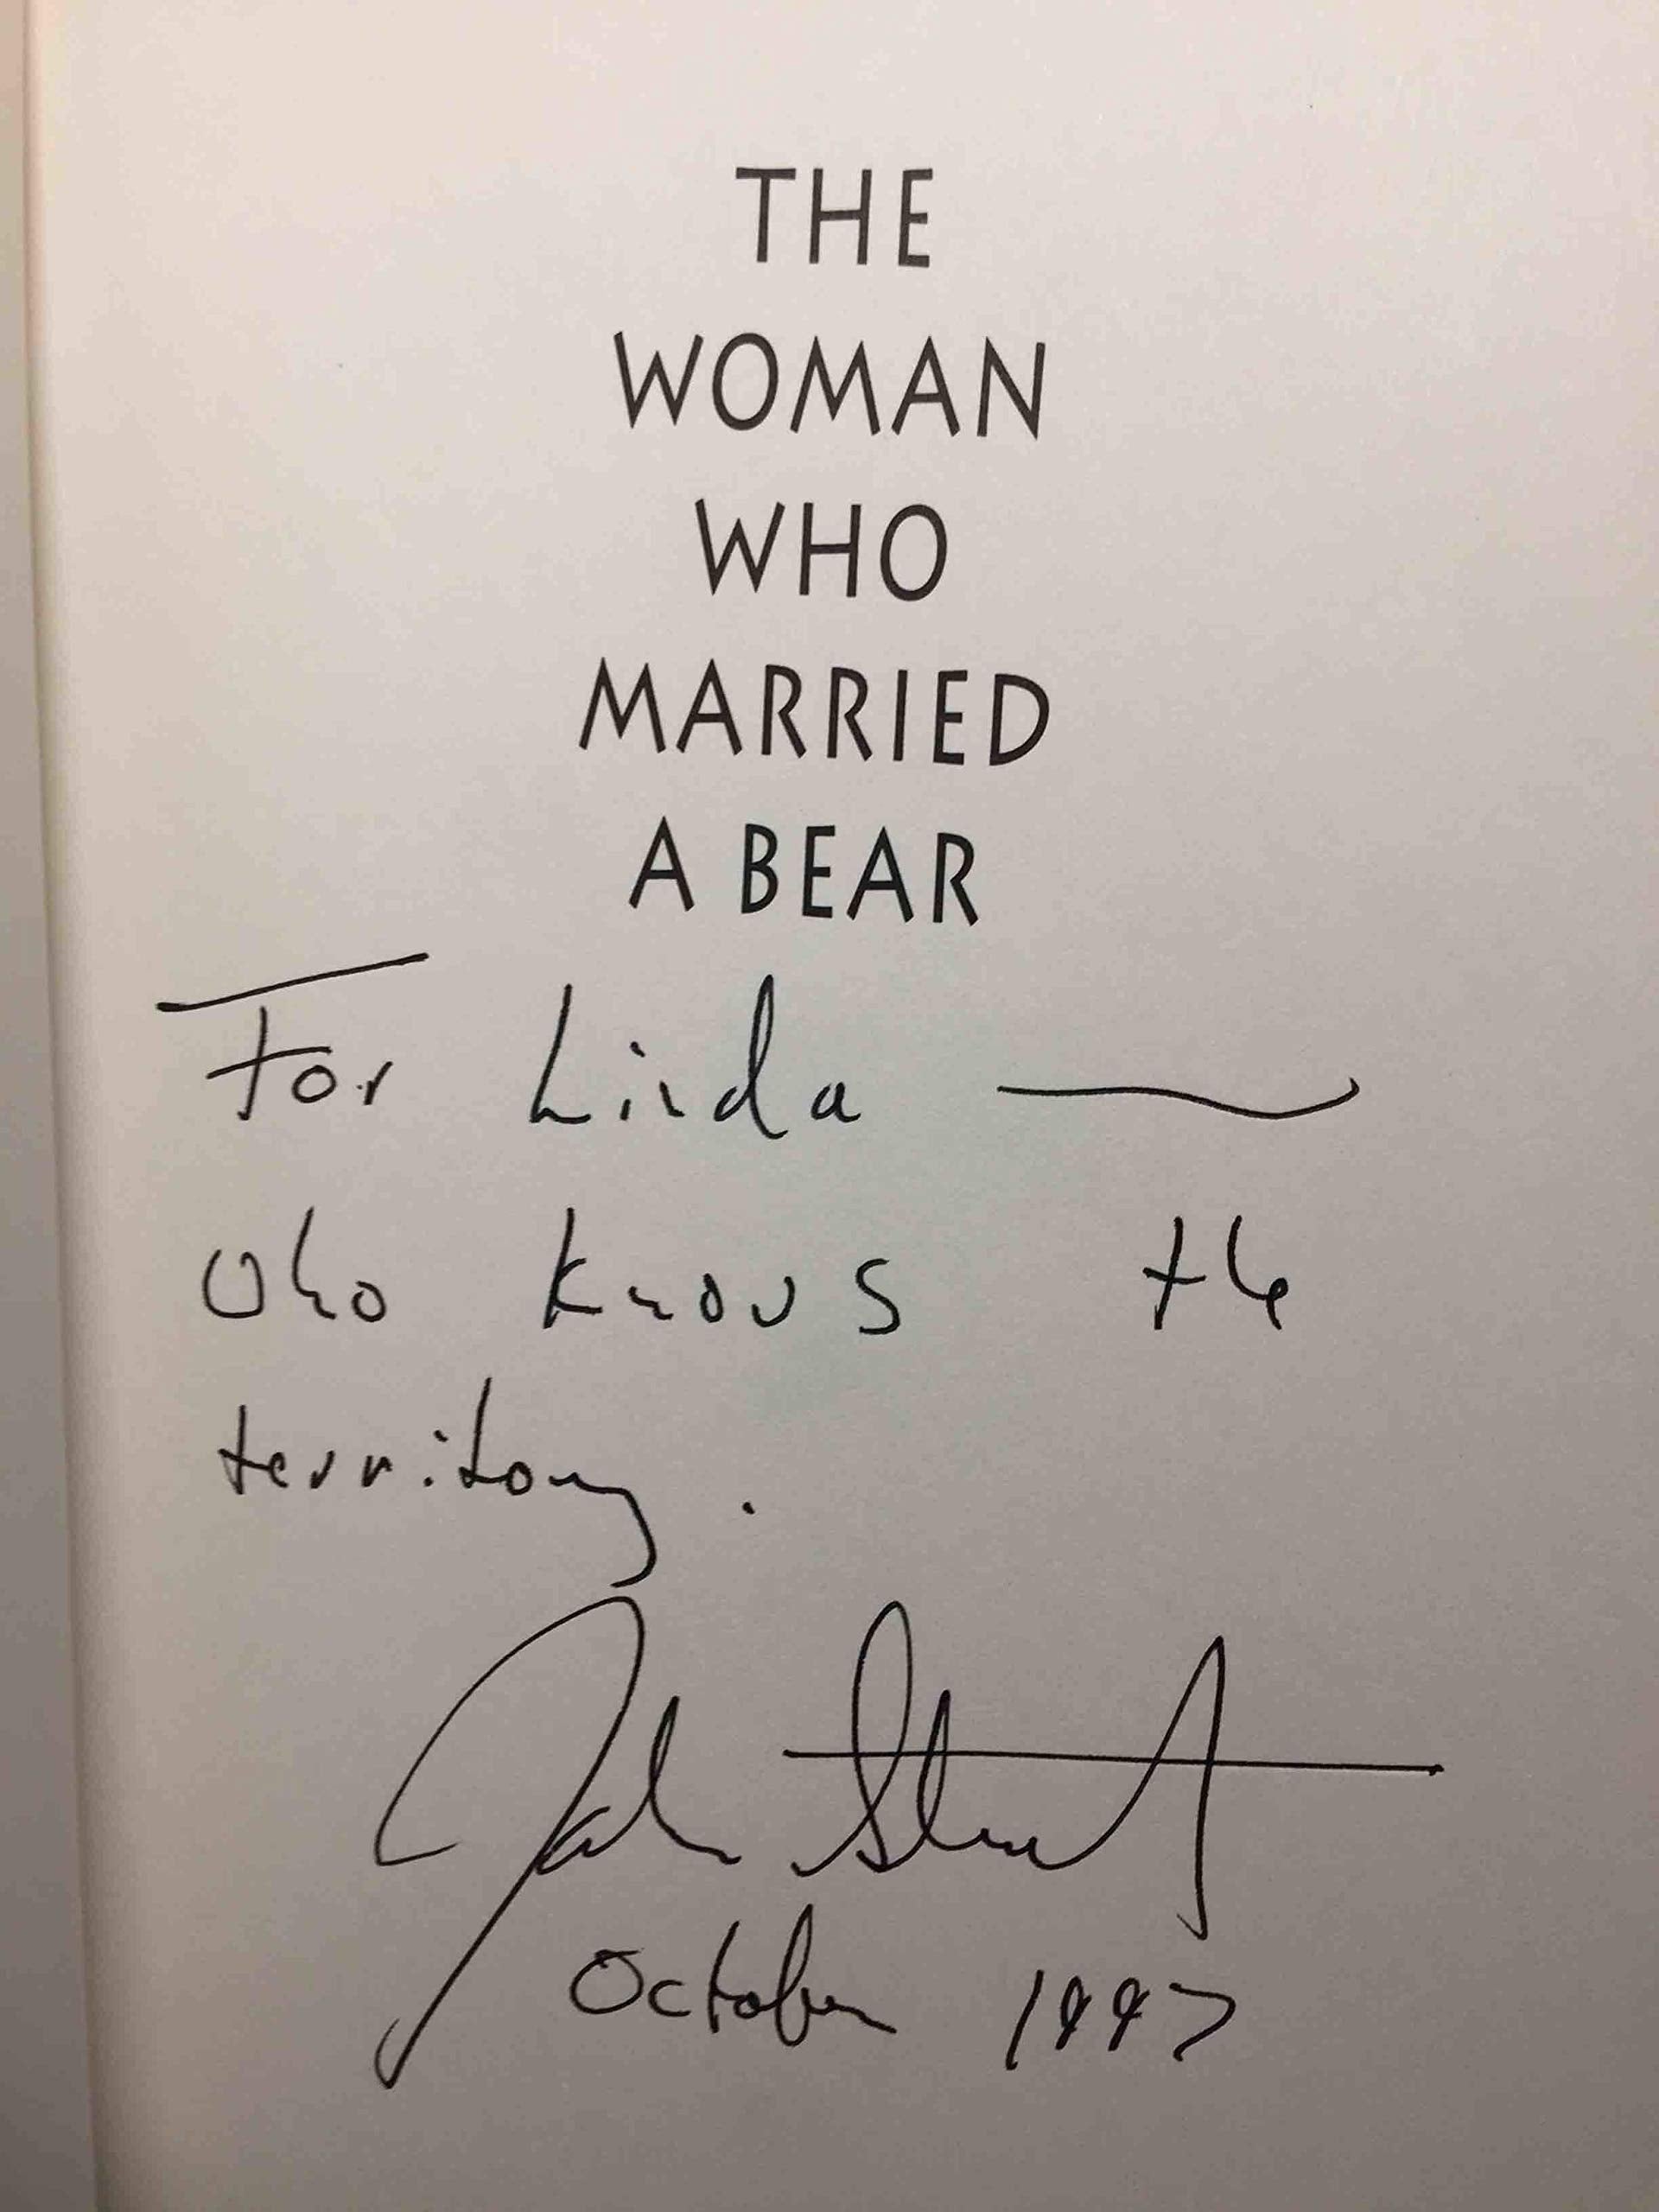 THE
WOMAN
WHO
MARRIED
A BEAR
For Linda —
who knows the
territory.
John Straley
October 1997